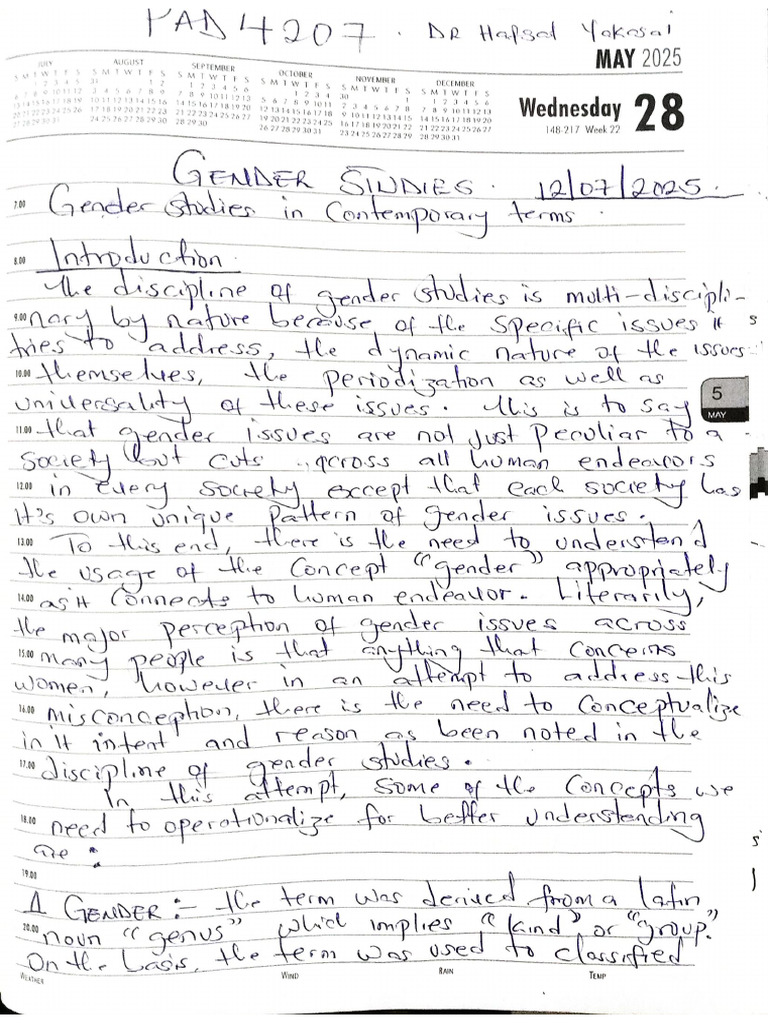 PAD 4207. DR Hafsat Yakasai
MAY 2025
JULY AUGUST SEPTEMBER OCTOBER NOVEMBER DECEMBER
Wednesday 28
148-217 Week 22
GENDER STUDIES. 12/07/2025.
7.00 Gender studies in Contemporary terms.
8.00 Introduction.
The discipline of gender studies is multi-discipli-
9.00 nary by nature because of the specific issues it
tries to address, the dynamic nature of the issues
10.00 themselves, the periodization as well as
universality of these issues. This is to say
5
MAY
11.00 that gender issues are not just peculiar to a
society but cuts across all human endeavors
12.00 in every society except that each society has
it's own unique pattern of gender issues.
13.00 To this end, there is the need to understand
the usage of the concept "gender" appropriately
14.00 as it connects to human endeavor. Literarily,
the major perception of gender issues across
15.00 many people is that anything that concerns
women, however in an attempt to address this
16.00 misconception, there is the need to conceptualize
in it intent and reason as been noted in the
17.00 discipline of gender studies.
In this attempt, some of the concepts we
18.00 need to operationalize for better understanding
are:
19.00
1 GENDER:- the term was derived from a latin
20.00 noun "genus" which implies "kind" or "group."
On the basis, the term was used to classified
WEATHER WIND RAIN TEMP